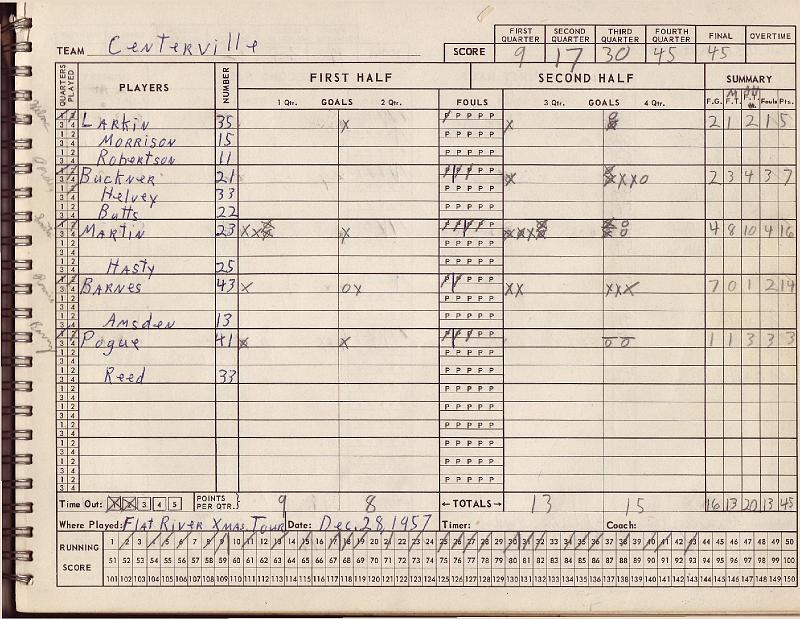 FIRST QUARTER SECOND QUARTER THIRD QUARTER FOURTH QUARTER FINAL OVERTIME
TEAM Centerville SCORE 9 17 30 45 45
QUARTERS PLAYED PLAYERS NUMBER FIRST HALF SECOND HALF SUMMARY
1 Qtr. GOALS 2 Qtr. FOULS 3 Qtr. GOALS 4 Qtr. F.G. F.T. Fouls Pts.
LARKIN 35 2 1 2 1 5
MORRISON 15
Robertson 11
Buckner 21 2 3 4 3 7
Helvey 33
Butts 22
MARTIN 23 4 8 10 4 16
HASTY 25
BARNES 43 7 0 1 2 14
AMSDEN 13
Pogue 41 1 1 3 3 3
Reed 33
Time Out: 1 2 3 4 5 POINTS PER QTR. 9 8 ←TOTALS→ 13 15 16 13 20 13 45
Where Played: Flat River Xmas Tour Date: Dec. 28, 1957 Timer: Coach:
RUNNING SCORE
1 2 3 4 5 6 7 8 9 10 11 12 13 14 15 16 17 18 19 20 21 22 23 24 25 26 27 28 29 30 31 32 33 34 35 36 37 38 39 40 41 42 43 44 45 46 47 48 49 50
51 52 53 54 55 56 57 58 59 60 61 62 63 64 65 66 67 68 69 70 71 72 73 74 75 76 77 78 79 80 81 82 83 84 85 86 87 88 89 90 91 92 93 94 95 96 97 98 99 100
101 102 103 104 105 106 107 108 109 110 111 112 113 114 115 116 117 118 119 120 121 122 123 124 125 126 127 128 129 130 131 132 133 134 135 136 137 138 139 140 141 142 143 144 145 146 147 148 149 150